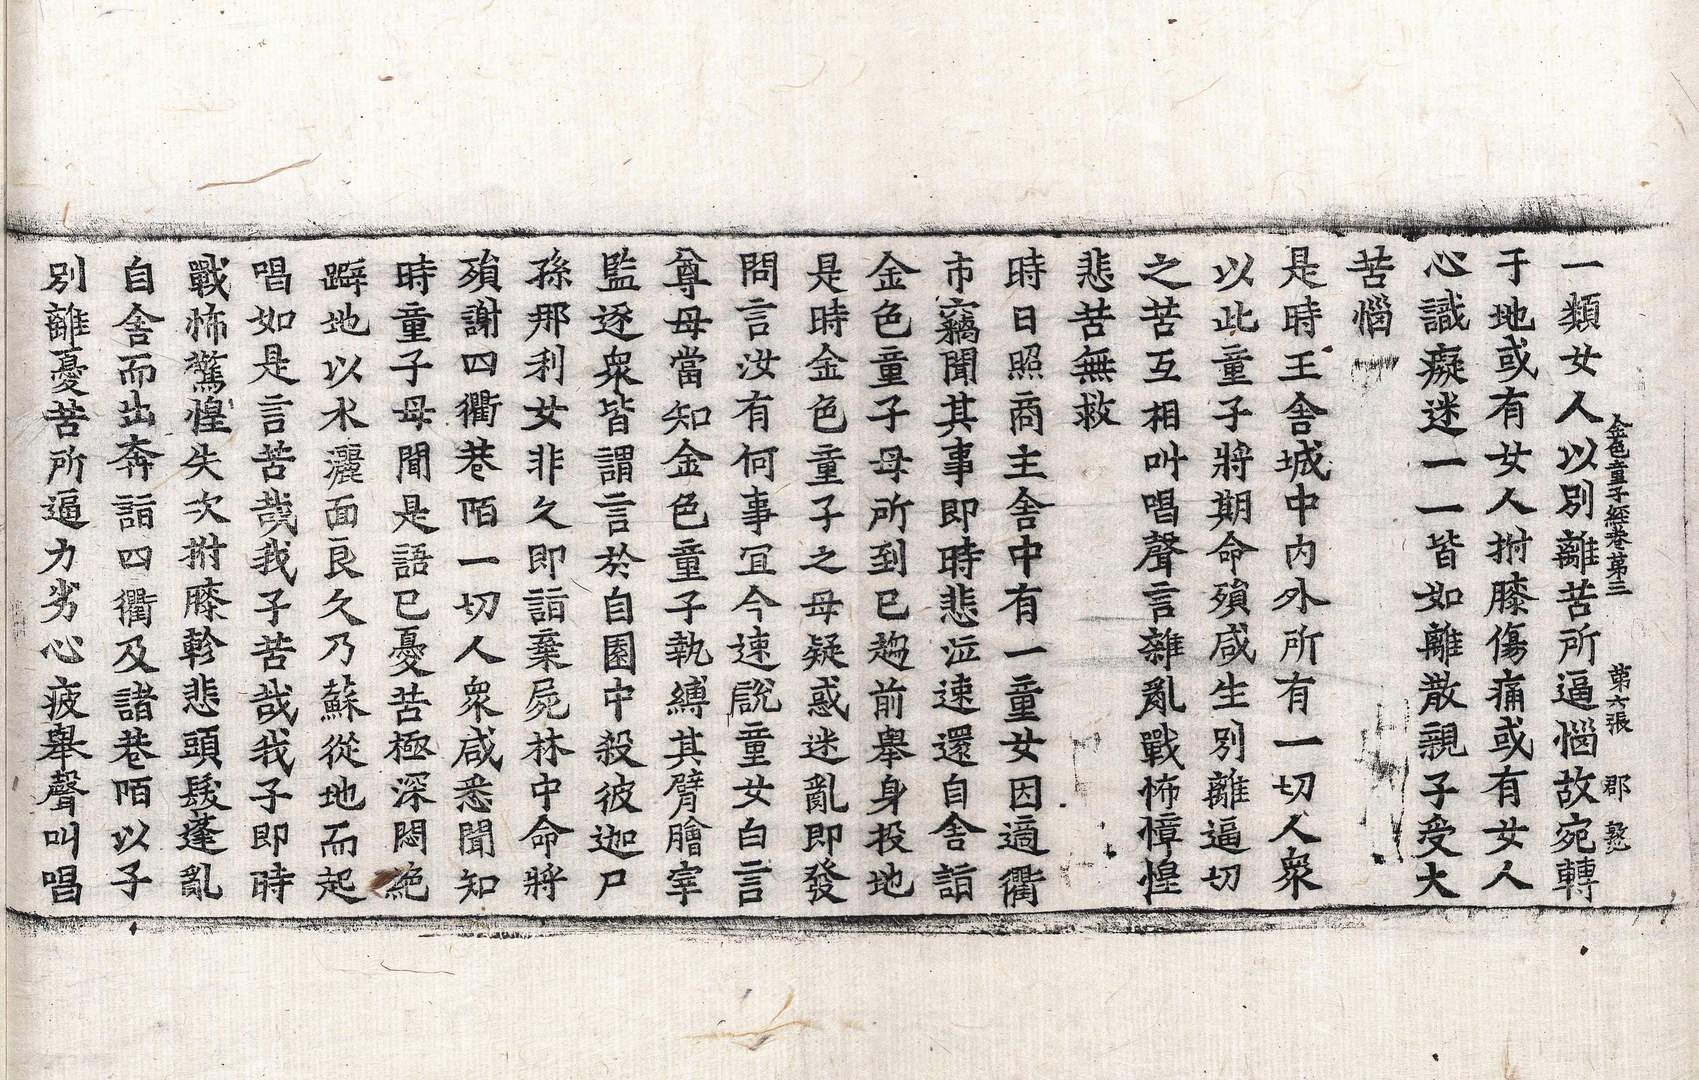 金色童子經卷第三　第六張　郡
一類女人以別離苦所逼惱故宛轉
于地或有女人拊膝傷痛或有女人
心識癡迷一一皆如離散親子受大
苦惱
是時王舍城中内外所有一切人衆
以此童子將期命殞咸生別離逼切
之苦互相叫唱聲言雜亂戰怖慞惶
悲苦無救
時日照商主舍中有一童女因適衢
市竊聞其事即時悲泣速還自舍詣
金色童子母所到已趨前舉身投地
是時金色童子之母疑惑迷亂即發
問言汝有何事冝今速説童女白言
尊母當知金色童子執縛其臂膾宰
監逐衆皆謂言於自園中殺彼迦尸
孫那利女非久即詣棄屍林中命將
殞謝四衢巷陌一切人衆咸悉聞知
時童子母聞是語已憂苦極深悶絶
躃地以水灑面良久乃蘇從地而起
唱如是言苦哉我子苦哉我子即時
戰怖驚惶失次拊膝軫悲頭髮蓬亂
自舍而出奔詣四衢及諸巷陌以子
別離憂苦所逼力劣心疲舉聲叫唱